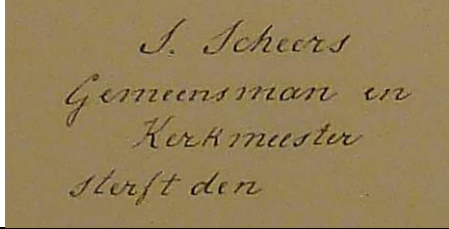 J. Scheers
Gemeensman en
Kerkmeester
sterft den